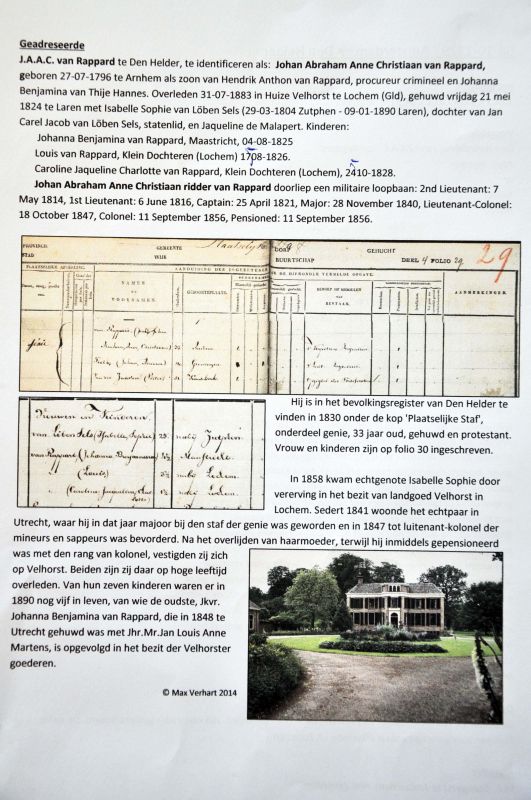 Geadreseerde
J.A.A.C. van Rappard te Den Helder, te identificeren als: Johan Abraham Anne Christiaan van Rappard,
geboren 27-07-1796 te Arnhem als zoon van Hendrik Anthon van Rappard, procureur crimineel en Johanna
Benjamina van Thije Hannes. Overleden 31-07-1883 in Huize Velhorst te Lochem (Gld), gehuwd vrijdag 21 mei
1824 te Laren met Isabelle Sophie van Löben Sels (29-03-1804 Zutphen - 09-01-1890 Laren), dochter van Jan
Carel Jacob van Löben Sels, statenlid, en Jaqueline de Malapert. Kinderen:
Johanna Benjamina van Rappard, Maastricht, 04-08-1825
Louis van Rappard, Klein Dochteren (Lochem) 1708-1826.
Caroline Jaqueline Charlotte van Rappard, Klein Dochteren (Lochem), 2410-1828.
Johan Abraham Anne Christiaan ridder van Rappard doorliep een militaire loopbaan: 2nd Lieutenant: 7
May 1814, 1st Lieutenant: 6 June 1816, Captain: 25 April 1821, Major: 28 November 1840, Lieutenant-Colonel:
18 October 1847, Colonel: 11 September 1856, Pensioned: 11 September 1856.
PROVINCIE
STAD
GEMEENTE
WIJK
Plaatselijke
BUURTSCHAP
GEHUCHT
DEEL 4 FOLIO 29
29
PLAATSELIJKE AFDEELING.
NAMEN
EN
VOORNAMEN.
GEBOORTEPLAATS.
BEROEP OF MIDDELEN
VAN
BESTAAN.
AANMERKINGEN.
Vrouwen en Kinderen
van Löben Sels (Isabella, Sophia) 25
van Rappard (Johanna
(Louis)
(Carolina
Hij is in het bevolkingsregister van Den Helder te
vinden in 1830 onder de kop 'Plaatselijke Staf',
onderdeel genie, 33 jaar oud, gehuwd en protestant.
Vrouw en kinderen zijn op folio 30 ingeschreven.
In 1858 kwam echtgenote Isabelle Sophie door
vererving in het bezit van landgoed Velhorst in
Lochem. Sedert 1841 woonde het echtpaar in
Utrecht, waar hij in dat jaar majoor bij den staf der genie was geworden en in 1847 tot luitenant-kolonel der
mineurs en sappeurs was bevorderd. Na het overlijden van haarmoeder, terwijl hij inmiddels gepensioneerd
was met den rang van kolonel, vestigden zij zich
op Velhorst. Beiden zijn zij daar op hoge leeftijd
overleden. Van hun zeven kinderen waren er in
1890 nog vijf in leven, van wie de oudste, Jkvr.
Johanna Benjamina van Rappard, die in 1848 te
Utrecht gehuwd was met Jhr.Mr.Jan Louis Anne
Martens, is opgevolgd in het bezit der Velhorster
goederen.
© Max Verhart 2014